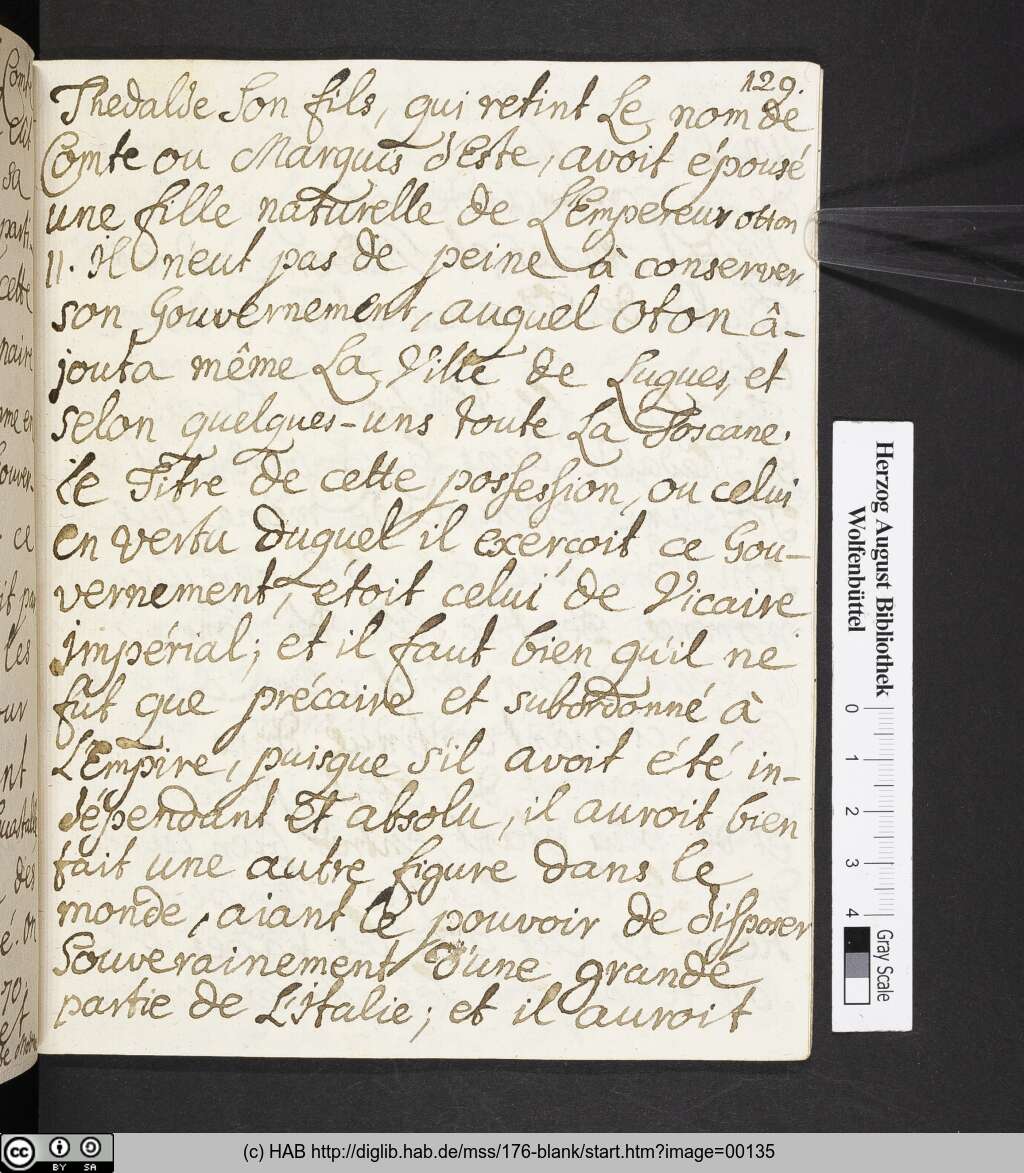 129.
Thedalde son fils, qui retint Le nom de
Comte ou Marquis d'Este, avoit épousé
une fille naturelle de L'Empereur otton
II. Il n'eut pas de peine à conserver
son Gouvernement, auquel Oton â-
jouta même La Ville de Luques, et
selon quelques-uns toute La Toscane.
le Titre de cette possession, ou celui
en vertu duquel il exerçoit ce Gou-
vernement, étoit celui de Vicaire
impérial; et il faut bien qu'il ne
fut que précaire et subordonné à
L'Empire, puisque s'il avoit été in-
dépendant Et absolu, il auroit bien
fait une autre figure dans le
monde, aiant le pouvoir de disposer
Souverainement d'une grande
partie de L'Italie; et il auroit
Herzog August Bibliothek
Wolfenbüttel
0 1 2 3 4
Gray Scale
cc BY SA
(c) HAB http://diglib.hab.de/mss/176-blank/start.htm?image=00135